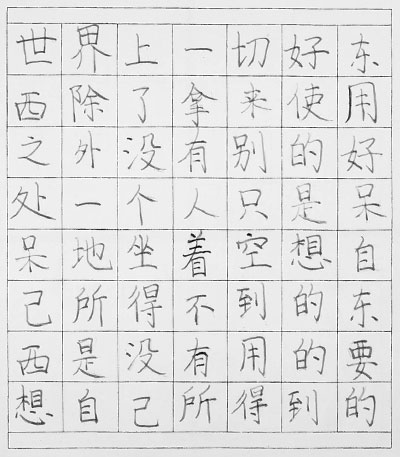 世界上一切好东
西除了拿来使用
之外没有别的好
处一个人只是呆
呆地坐着空想自
己所得不到的东
西是没有用的要
想自己所得到的